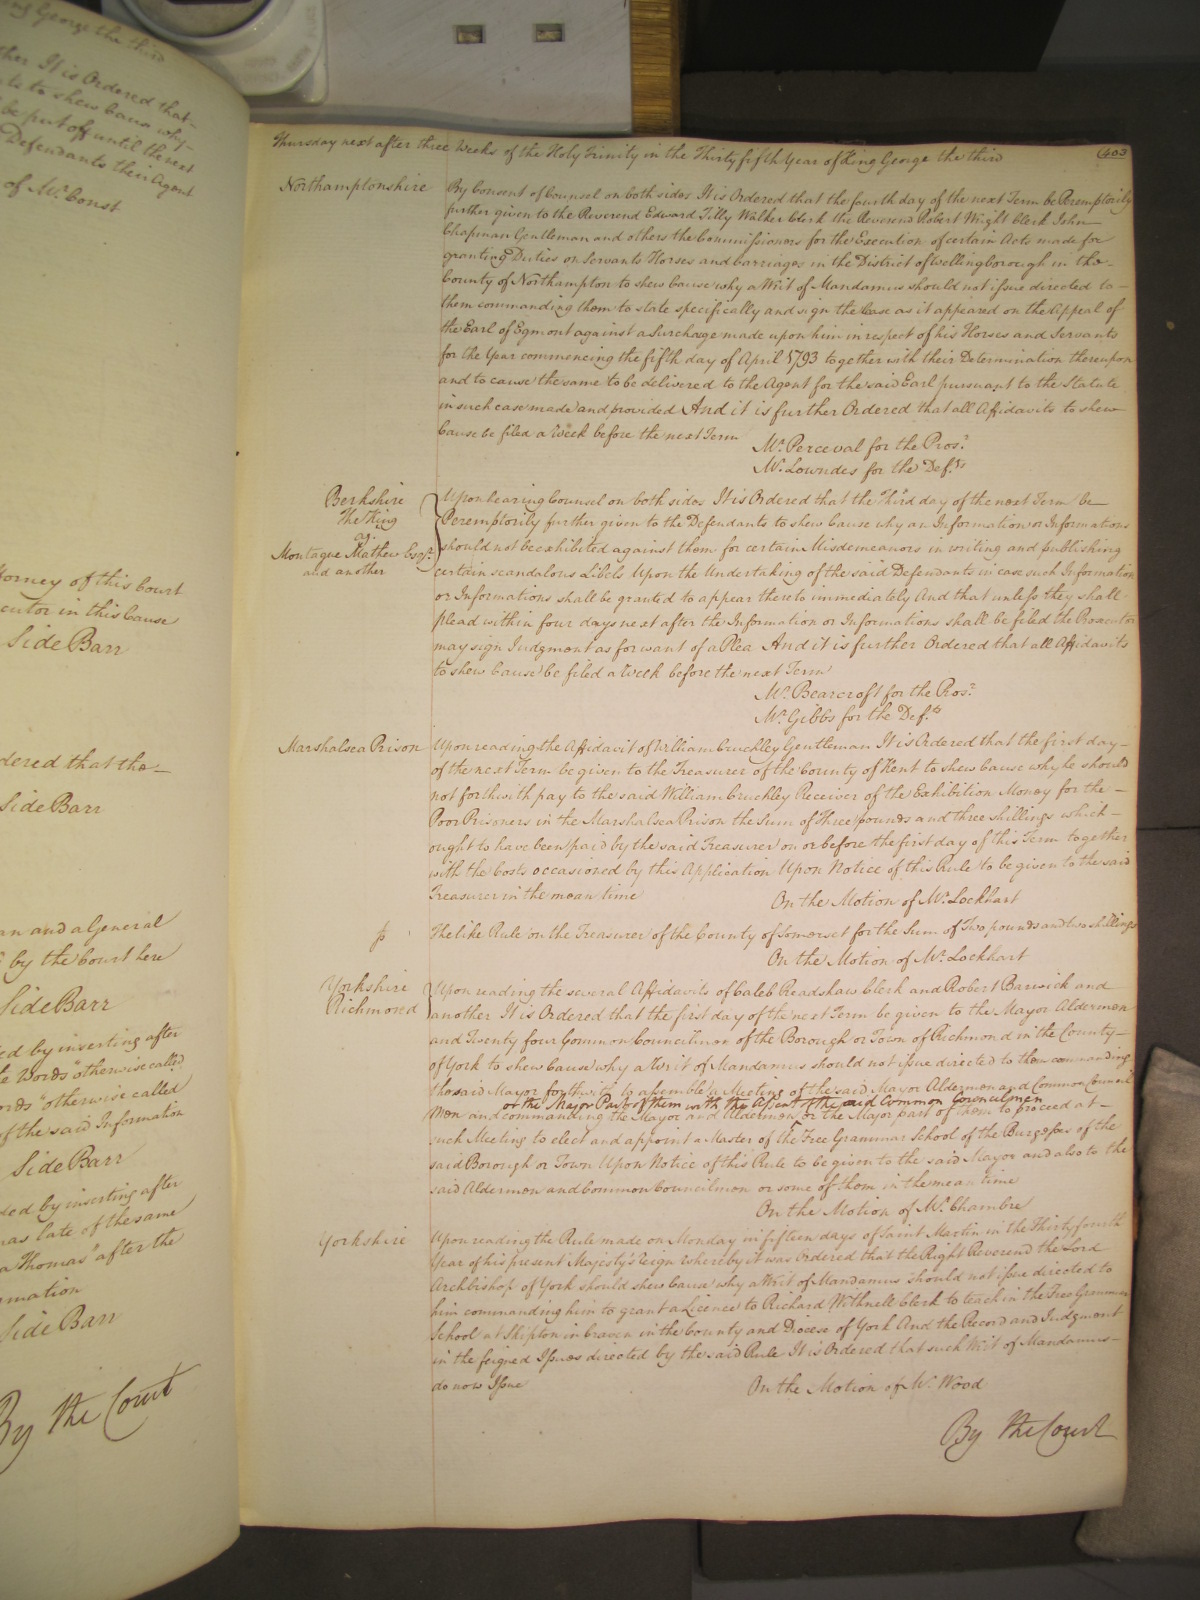 ing George the third
ther It is Ordered that
nts to shew Cause why
be put off until the next
Defendants their Agent
of Mr. Const
torney of this Court
cutor in this Cause
Side Barr
dered that the
Side Barr
an and a General
by the Court here
Side Barr
ed by inserting after
e Words "otherwise called
ords "otherwise called
of the said Information
Side Barr
ded by inserting after
was late of the same
a Thomas" after the
rmation
Side Barr
By the Court
Thursday next after three Weeks of the Holy Trinity in the Thirty fifth Year of King George the third
403
Northamptonshire
By Consent of Counsel on both sides It is Ordered that the fourth day of the next Term be Peremptorily
further given to the Reverend Edward Tilly Walker Clerk the Reverend Robert Wright Clerk John
Chapman Gentleman and others the Commissioners for the Execution of certain Acts made for
granting Duties on Servants Horses and Carriages in the District of Wellingborough in the
County of Northampton to shew Cause why a Writ of Mandamus should not issue directed to
them commanding them to state specifically and sign the Case as it appeared on the Appeal of
the Earl of Egmont against a Surcharge made upon him in respect of his Horses and Servants
for the Year commencing the fifth day of April 1793 together with their Determination thereupon
and to cause the same to be delivered to the Agent for the said Earl pursuant to the Statute
in such case made and provided And it is further Ordered that all Affidavits to shew
Cause be filed a Week before the next Term
Mr. Perceval for the Pros.r
Mr. Lowndes for the Def.ts
Berkshire
The King
ag.
Montague Mathew Esqr.
and another
Upon hearing Counsel on both sides It is Ordered that the Third day of the next Term be
Peremptorily further given to the Defendants to shew Cause why an Information or Informations
should not be exhibited against them for certain Misdemeanors in writing and publishing
certain scandalous Libels Upon the Undertaking of the said Defendants in case such Information
or Informations shall be granted to appear thereto immediately And that unless they shall
plead within four days next after the Information or Informations shall be filed the Prosecutor
may sign Judgment as for want of a Plea And it is further Ordered that all Affidavits
to shew Cause be filed a Week before the next Term
Mr. Bearcroft for the Pros.r
Mr. Gibbs for the Def.ts
Marshalsea Prison
Upon reading the Affidavit of William Cruckley Gentleman It is Ordered that the first day
of the next Term be given to the Treasurer of the County of Kent to shew Cause why he should
not forthwith pay to the said William Cruckley Receiver of the Exhibition Money for the
Poor Prisoners in the Marshalsea Prison the Sum of Three pounds and three shillings which
ought to have been paid by the said Treasurer on or before the first day of this Term together
with the Costs occasioned by this Application Upon Notice of this Rule to be given to the said
Treasurer in the mean time
On the Motion of Mr. Lockhart
The like Rule on the Treasurer of the County of Somerset for the Sum of Two pounds and two shillings
On the Motion of Mr. Lockhart
Yorkshire
Richmond
Upon reading the several Affidavits of Caleb Readshaw Clerk and Robert Barwick and
another It is Ordered that the first day of the next Term be given to the Mayor Aldermen
and Twenty four Common Councilmen of the Borough or Town of Richmond in the County
of York to shew Cause why a Writ of Mandamus should not issue directed to them commanding
the said Mayor forthwith to assemble a Meeting of the said Mayor Aldermen and Common Council
or the Major Part of them with the Assent of the said Common Councilmen
men and commanding the Mayor and Aldermen or the Major part of them to proceed at
such Meeting to elect and appoint a Master of the Free Grammar School of the Burgesses of the
said Borough or Town Upon Notice of this Rule to be given to the said Mayor and also to the
said Aldermen and Common Councilmen or some of them in the mean time
On the Motion of Mr. Chambre
Yorkshire
Upon reading the Rule made on Monday in fifteen days of Saint Martin in the Thirty fourth
Year of his present Majesty's Reign whereby it was Ordered that the Right Reverend the Lord
Archbishop of York should shew Cause why a Writ of Mandamus should not issue directed to
him commanding him to grant a Licence to Richard Withnell Clerk to teach in the Free Grammar
School at Skipton in Craven in the County and Diocese of York And the Record and Judgment
in the feigned Issues directed by the said Rule It is Ordered that such Writ of Mandamus
do now Issue
On the Motion of Mr. Wood
By the Court